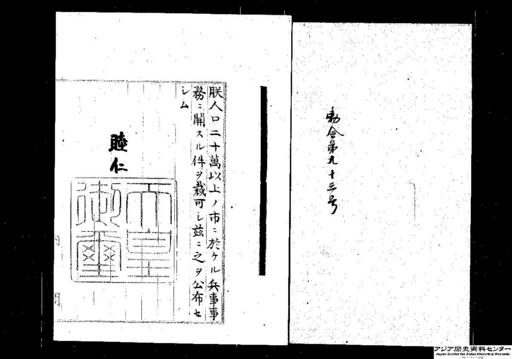 勅令第九十三号
朕人口二十萬以上ノ市ニ於ケル兵事事
務ニ關スル件ヲ裁可シ玆ニ之ヲ公布セ
シム
睦仁
天皇
御璽
月
アジア歴史資料センター
Japan Center for Asian Historical Records